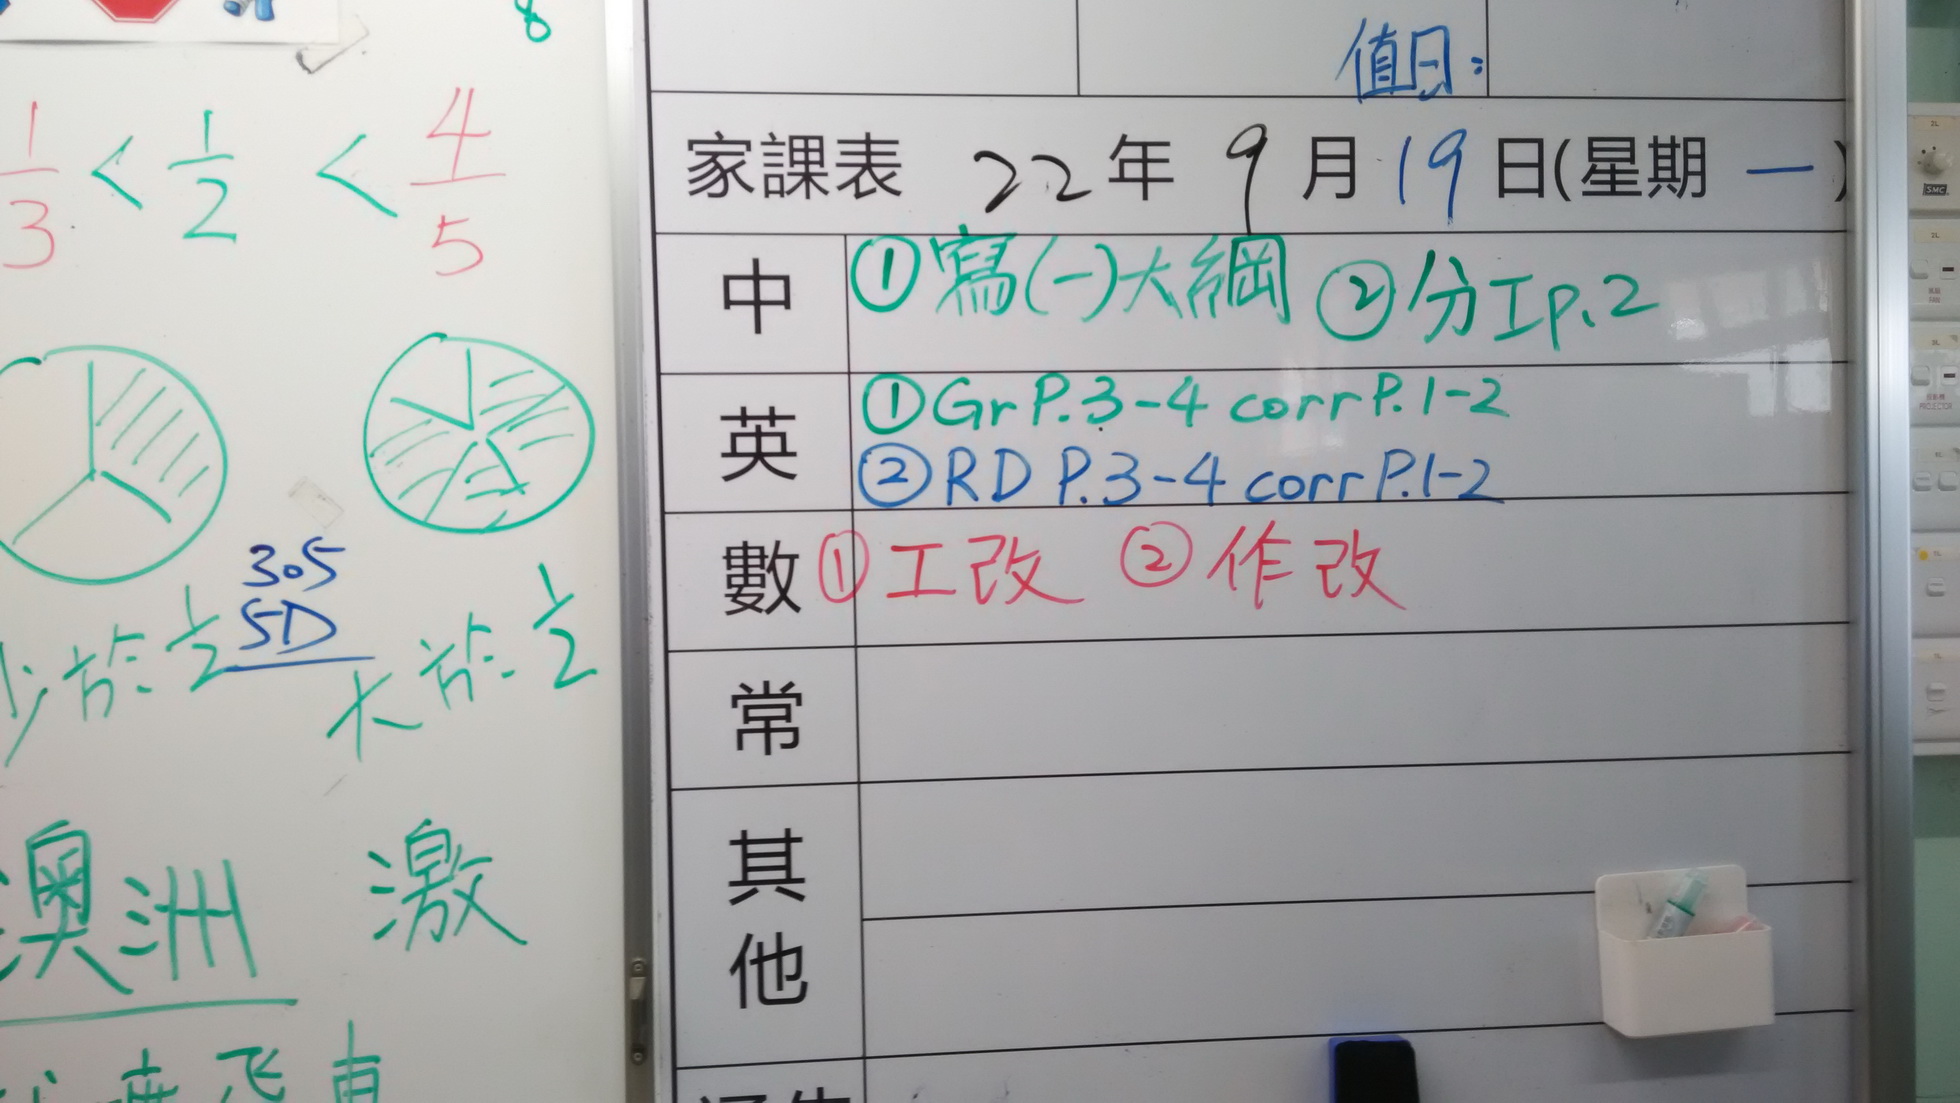 8
1/3 < 1/2 < 4/5
305
5D
少於 1/2
大於 1/2
澳洲 激
飛車
值日:
家課表 22年 9月 19日(星期 一)
中 ①寫(一)大綱 ②分工p.2
英 ①Gr P.3-4 corr P.1-2
②RD P.3-4 corr P.1-2
數 ①工改 ②作改
常
其他
2L
SMC
2L
3L
PROJECTOR